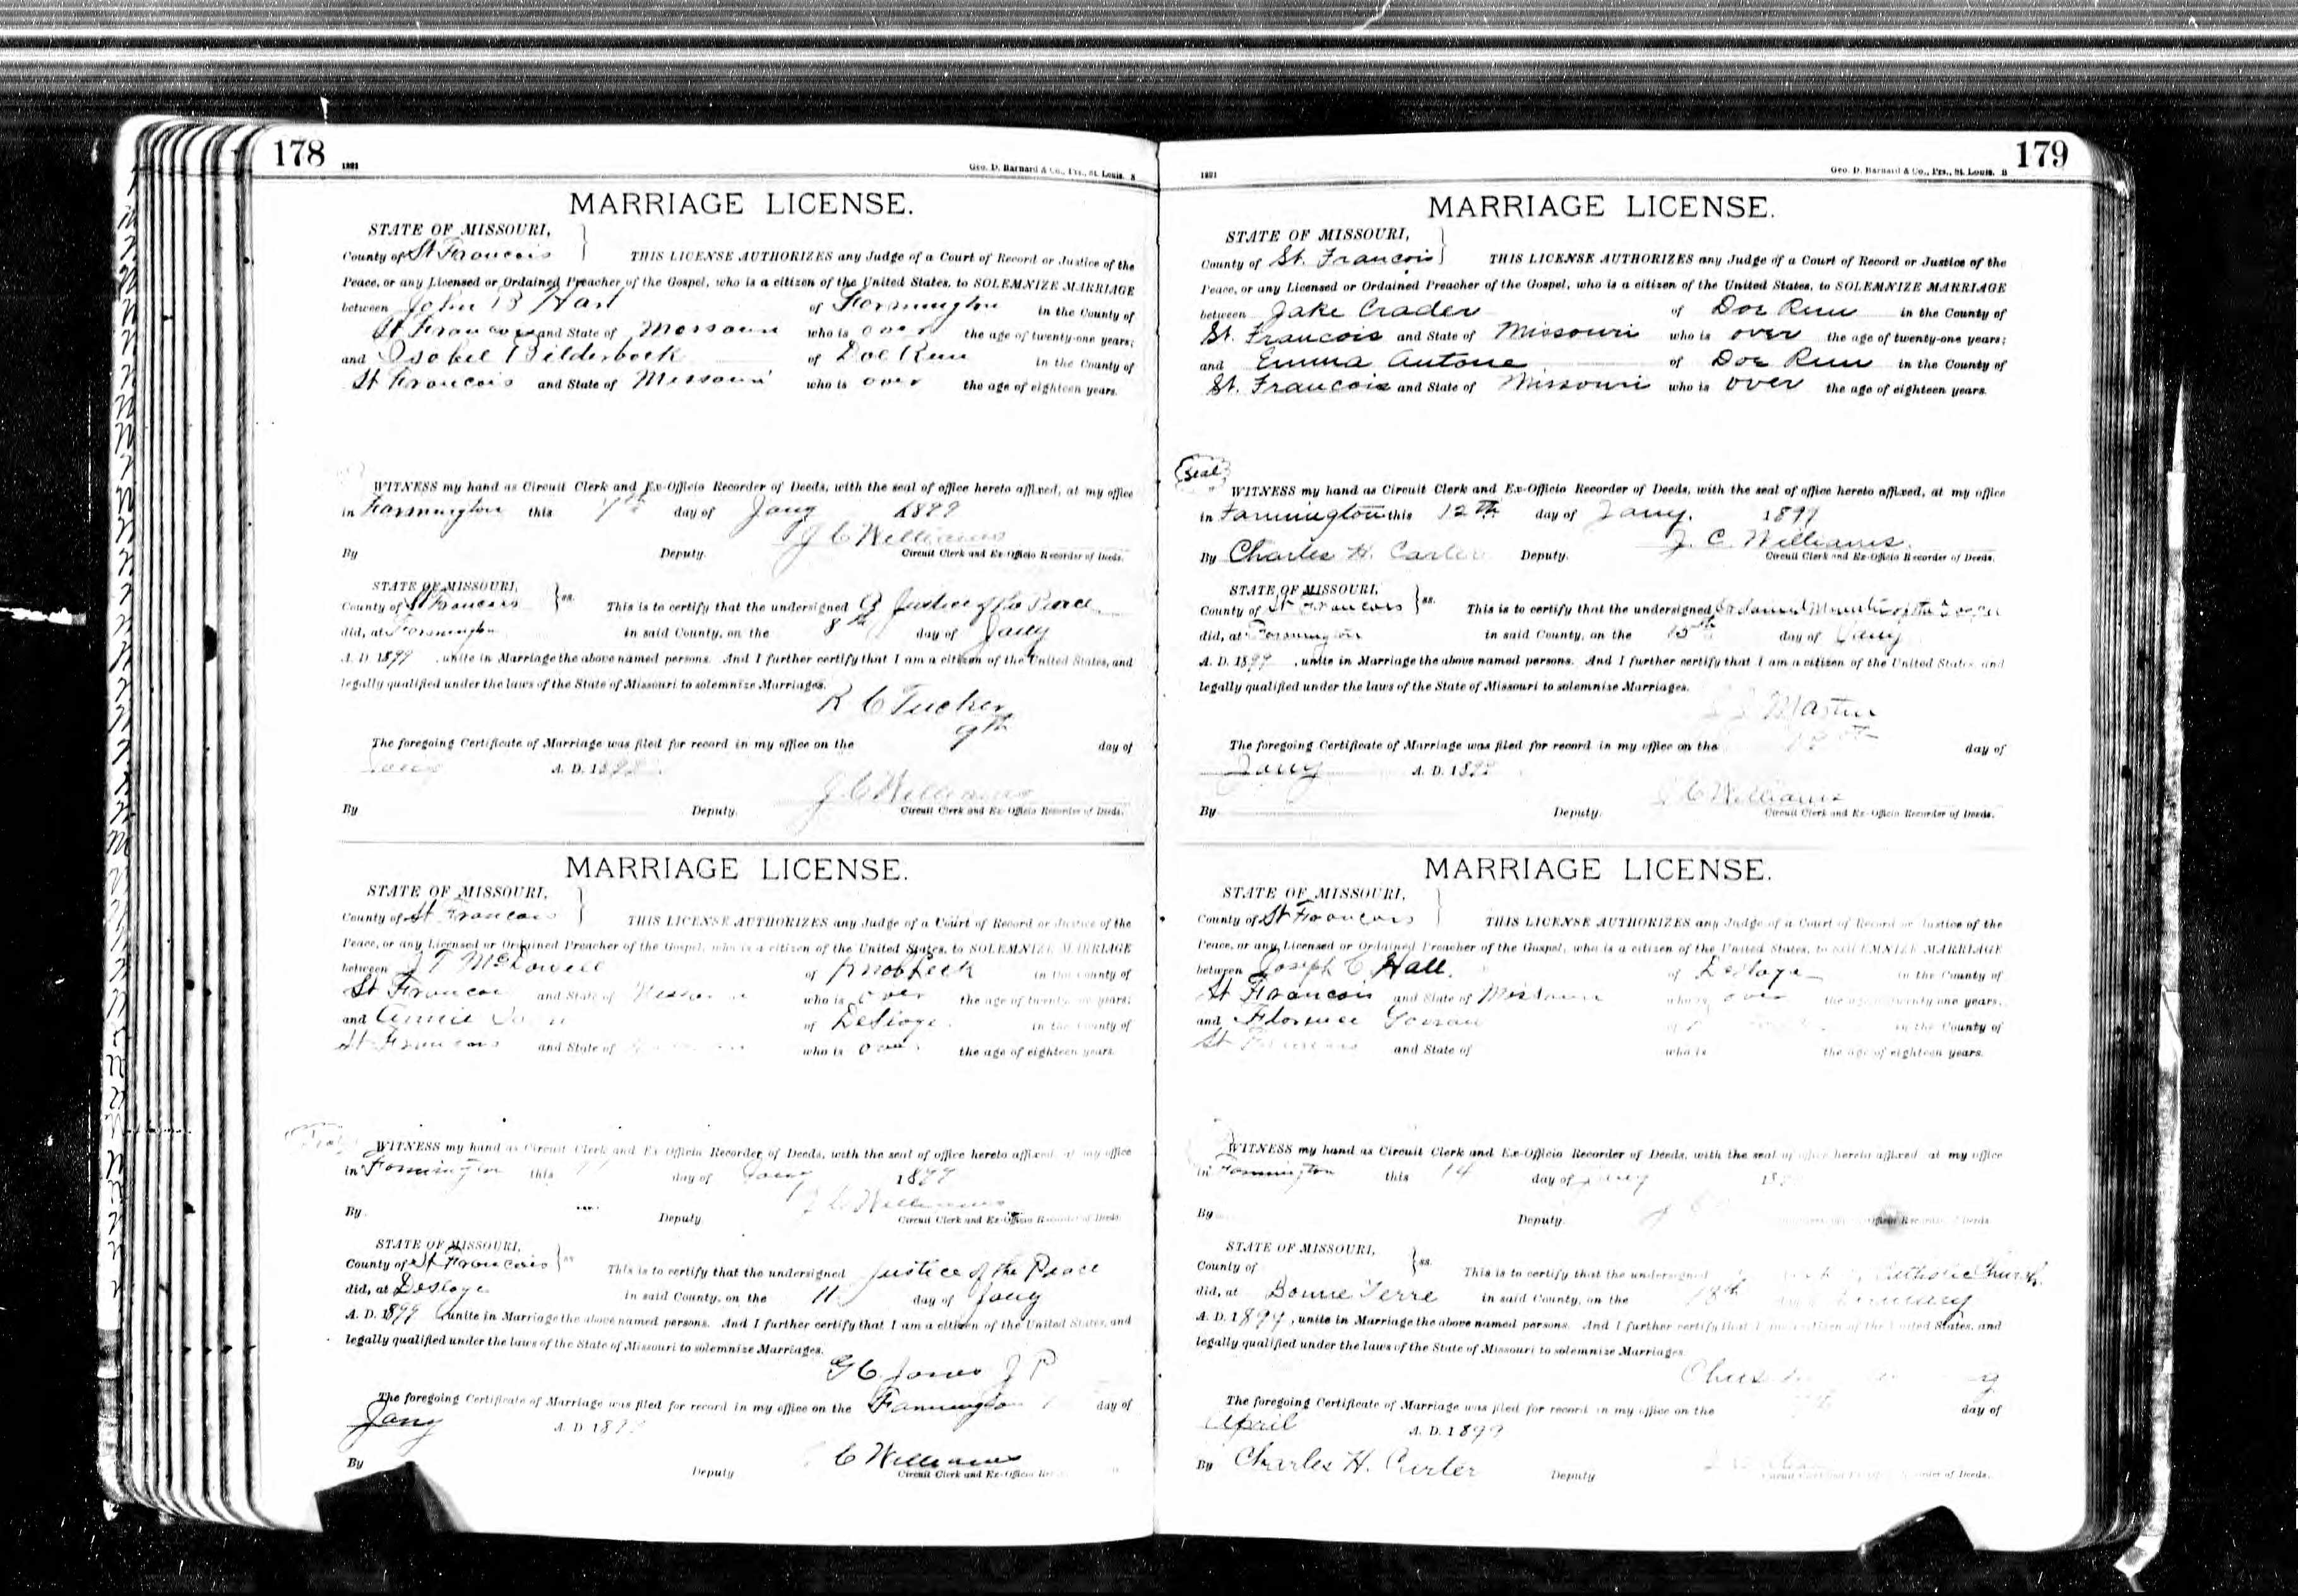 178
1891
Geo. D. Barnard & Co., Prs., St. Louis.
MARRIAGE LICENSE.
STATE OF MISSOURI,
County of St Francois
THIS LICENSE AUTHORIZES any Judge of a Court of Record or Justice of the
Peace, or any Licensed or Ordained Preacher of the Gospel, who is a citizen of the United States, to SOLEMNIZE MARRIAGE
between John B Hart of Farmington in the County of
St Francois and State of Missouri who is over the age of twenty-one years;
and Isobel Bilderbeck of Doe Run in the County of
St Francois and State of Missouri who is over the age of eighteen years.
WITNESS my hand as Circuit Clerk and Ex-Officio Recorder of Deeds, with the seal of office hereto affixed, at my office
in Farmington this 7th day of Jany 1899
J C Williams
By Deputy. Circuit Clerk and Ex-Officio Recorder of Deeds.
STATE OF MISSOURI,
County of St Francois ss. This is to certify that the undersigned a Justice of the Peace
did, at Farmington in said County, on the 8th day of Jany
A. D. 1899, unite in Marriage the above named persons. And I further certify that I am a citizen of the United States, and
legally qualified under the laws of the State of Missouri to solemnize Marriages.
R C Tucker
The foregoing Certificate of Marriage was filed for record in my office on the 9th day of
Jany A. D. 1899
J C Williams
By Deputy. Circuit Clerk and Ex-Officio Recorder of Deeds.
MARRIAGE LICENSE.
STATE OF MISSOURI,
County of St Francois
THIS LICENSE AUTHORIZES any Judge of a Court of Record or Justice of the
Peace, or any Licensed or Ordained Preacher of the Gospel, who is a citizen of the United States, to SOLEMNIZE MARRIAGE
between J T McDowell of Knob Lick in the County of
St Francois and State of Missouri who is over the age of twenty-one years;
and Annie of Desloge in the County of
St Francois and State of who is over the age of eighteen years.
WITNESS my hand as Circuit Clerk and Ex-Officio Recorder of Deeds, with the seal of office hereto affixed, at my office
in Farmington this day of Jany 1899
J C Williams
By Deputy Circuit Clerk and Ex-Officio Recorder of Deeds.
STATE OF MISSOURI,
County of St Francois ss This is to certify that the undersigned Justice of the Peace
did, at Desloge in said County, on the 11 day of Jany
A. D. 1899 unite in Marriage the above named persons. And I further certify that I am a citizen of the United States, and
legally qualified under the laws of the State of Missouri to solemnize Marriages.
G C Jones J P
The foregoing Certificate of Marriage was filed for record in my office on the Farmington day of
Jany A. D. 1899
C Williams
By Deputy Circuit Clerk and Ex-Officio
179
1891
Geo. D. Barnard & Co., Prs., St. Louis. B
MARRIAGE LICENSE.
STATE OF MISSOURI,
County of St. Francois
THIS LICENSE AUTHORIZES any Judge of a Court of Record or Justice of the
Peace, or any Licensed or Ordained Preacher of the Gospel, who is a citizen of the United States, to SOLEMNIZE MARRIAGE
between Jake Crader of Doe Run in the County of
St. Francois and State of Missouri who is over the age of twenty-one years;
and Emma Antone of Doe Run in the County of
St. Francois and State of Missouri who is over the age of eighteen years.
Seal
WITNESS my hand as Circuit Clerk and Ex-Officio Recorder of Deeds, with the seal of office hereto affixed, at my office
in Farmington this 12th day of Jany. 1899
J. C. Williams.
By Charles H. Carter Deputy. Circuit Clerk and Ex-Officio Recorder of Deeds.
STATE OF MISSOURI,
County of St Francois ss. This is to certify that the undersigned Ordained Minister of the Gospel
did, at Farmington in said County, on the 15th day of Jany
A. D. 1899, unite in Marriage the above named persons. And I further certify that I am a citizen of the United States, and
legally qualified under the laws of the State of Missouri to solemnize Marriages.
Martin
The foregoing Certificate of Marriage was filed for record in my office on the day of
Jany A. D. 1899
J C Williams
By Deputy. Circuit Clerk and Ex-Officio Recorder of Deeds.
MARRIAGE LICENSE.
STATE OF MISSOURI,
County of St Francois
THIS LICENSE AUTHORIZES any Judge of a Court of Record or Justice of the
Peace, or any Licensed or Ordained Preacher of the Gospel, who is a citizen of the United States, to SOLEMNIZE MARRIAGE
between Joseph C Hall. of Desloge in the County of
St Francois and State of Missouri who is over the age of twenty-one years.
and Florence in the County of
St Francois and State of who is the age of eighteen years.
WITNESS my hand as Circuit Clerk and Ex-Officio Recorder of Deeds, with the seal of office hereto affixed at my office
in Farmington this 14 day of Jany
By Deputy. Officio Recorder of Deeds
STATE OF MISSOURI,
County of ss. This is to certify that the undersigned Catholic Church.
did, at Bonne Terre in said County, on the 18th day of January
A. D. 1899, unite in Marriage the above named persons. And I further certify that I am a citizen of the United States, and
legally qualified under the laws of the State of Missouri to solemnize Marriages
The foregoing Certificate of Marriage was filed for record in my office on the day of
April A. D. 1899
By Charles H. Carter Deputy